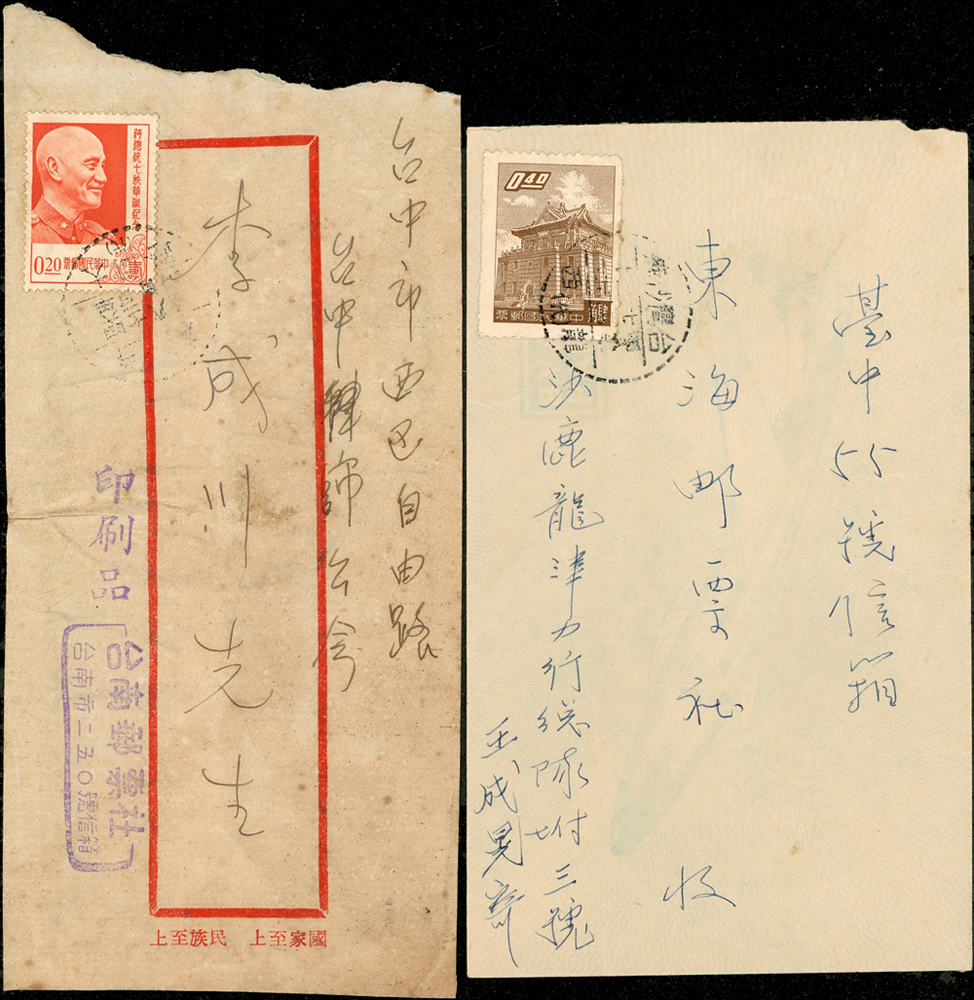 蔣總統七秩華誕紀念
0.20
中華民國郵票
台中市西區自由路
台中律師公會
李成川先生
印刷品
台南郵票社
台南市二五〇號信箱
國家至上 民族至上
0.40
中華民國郵票
臺中55號信箱
東海郵票社 收
沙鹿龍津力行總隊坿三號
王成晃寄